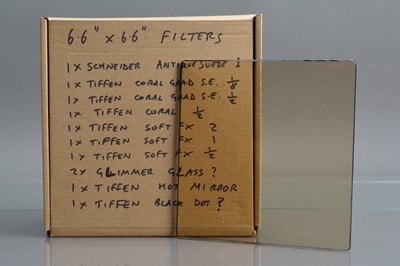 6.6" x 6.6" FILTERS
1x SCHNEIDER ANTIQUE SUEDE 1
1x TIFFEN CORAL GRAD S.E. 1/8
1x TIFFEN CORAL GRAD S.E. 1/2
1x TIFFEN CORAL 1/2
1x TIFFEN SOFT FX 2
1x TIFFEN SOFT FX 1
1x TIFFEN SOFT FX 1/2
2x GLIMMER GLASS ?
1x TIFFEN HOT MIRROR
1x TIFFEN BLACK DOT ?